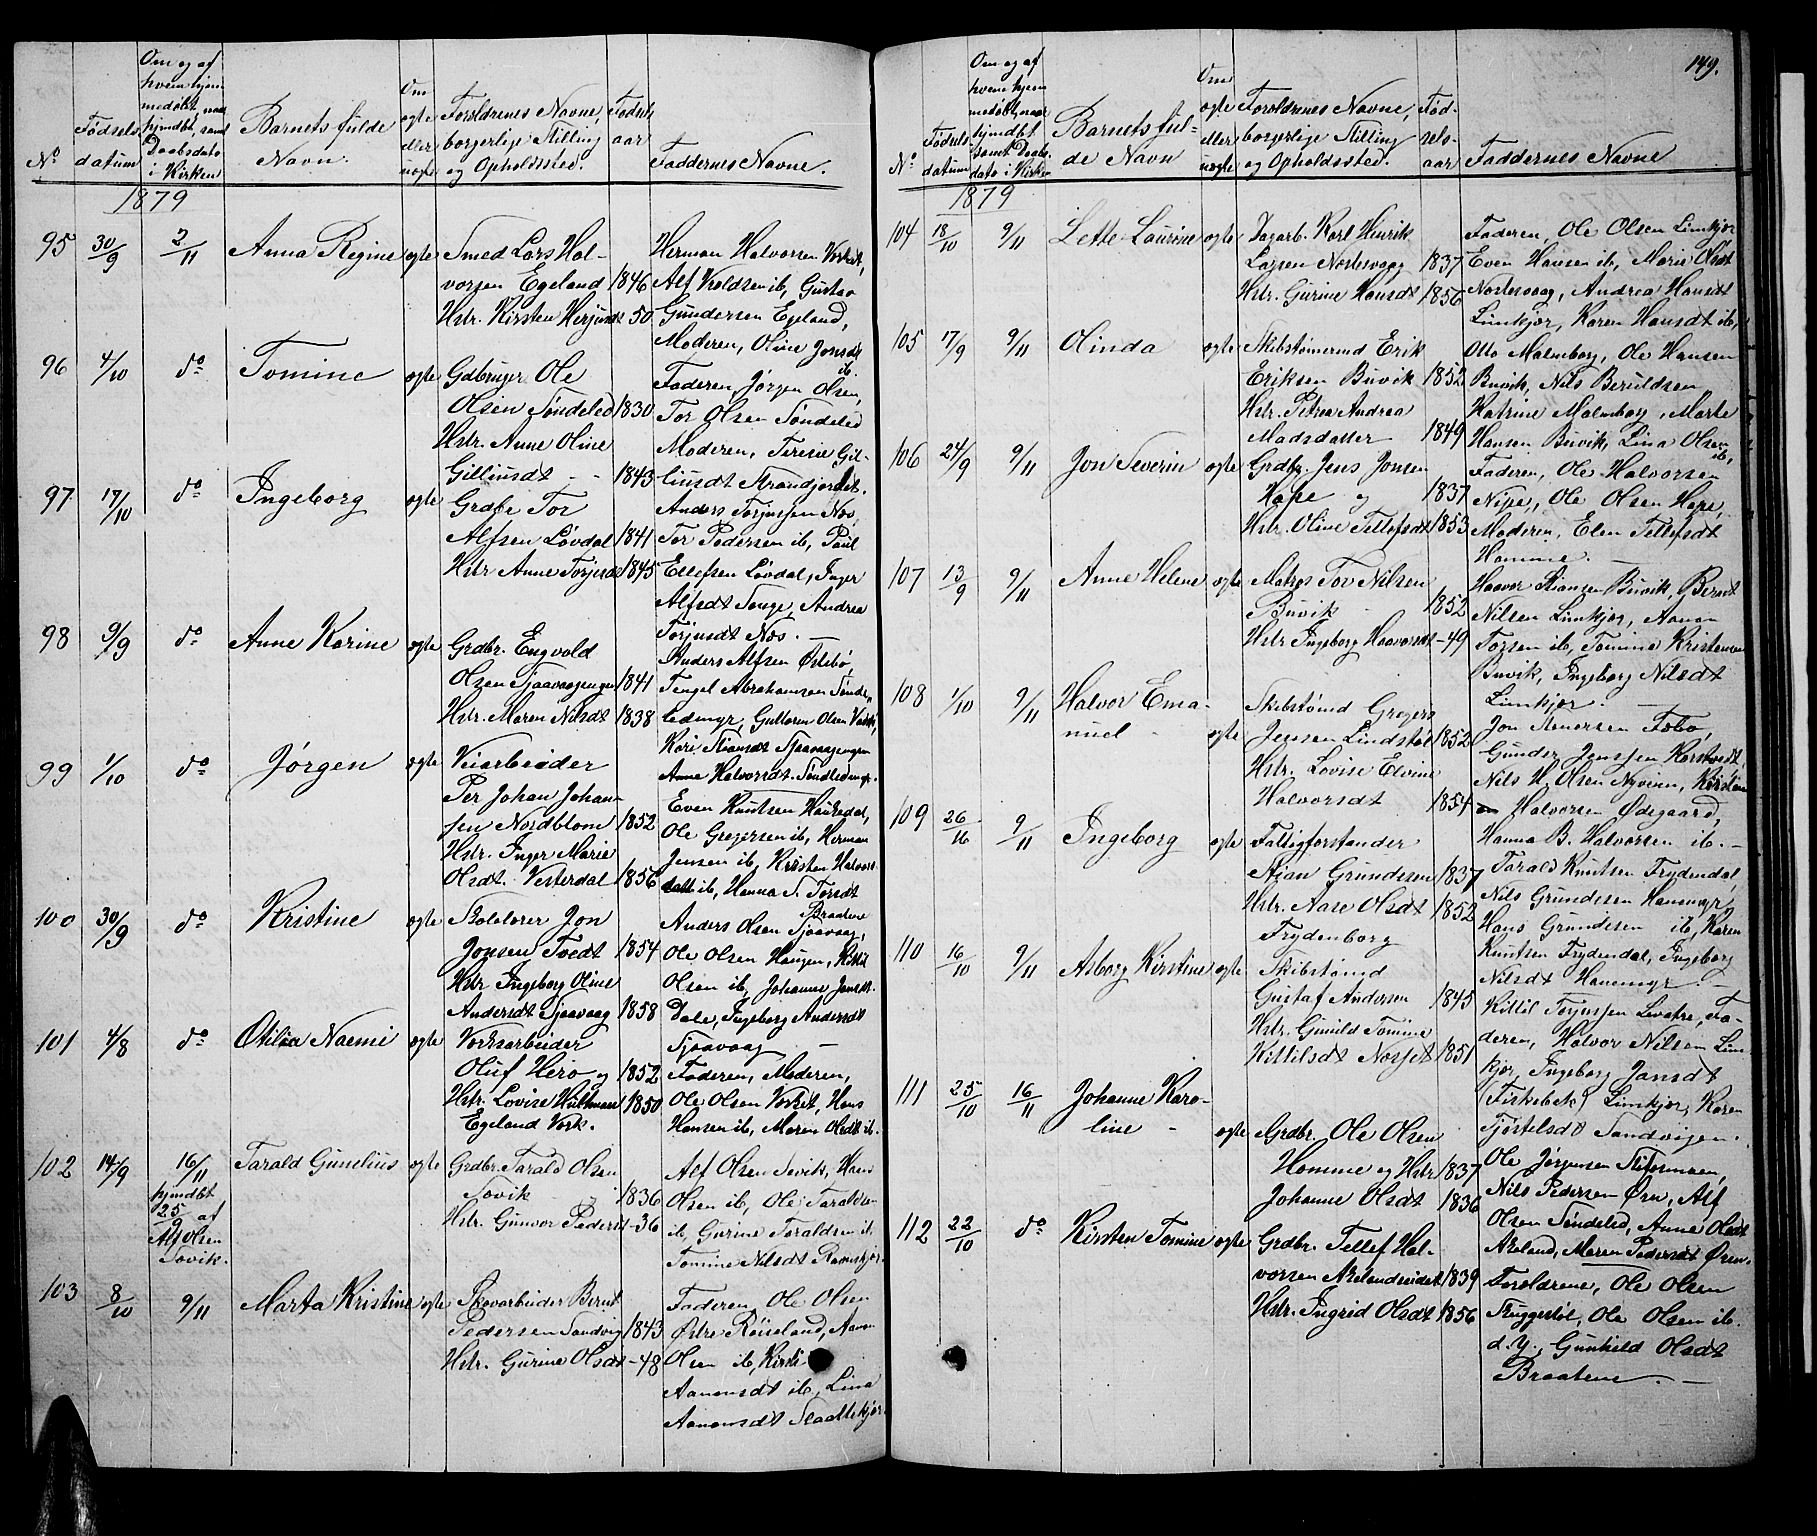 149.
No
Fødsels datum
Om og af hvem hjem medøbt, naar hjmdbt, samt Daabsdato i Kirken
Barnets fulde Navn.
Om ægte eller uægte
Forældrenes Navne, borgerlige Stilling og Opholdssted.
Fødsels aar
Faddernes Navne.
1879
95 30/9 2/11 Anna Regine ægte
Smed Lars Hal-
vorsen Egeland 1846
Hstr. Kirsten Herjusdt 50
Herman Halvorsen Verket,
Alf Knldsen ib, Gustav
Gundersen Egeland,
Moderen, Oline Jensdt
ib.
96 4/10 do Tomine ægte
Gdbruger Ole
Olsen Søndeled 1830
Hstr. Anne Oline
Gilliusdt - - 1843
Faderen, Jørgen Olsen,
Tor Olsen Søndeled
Moderen, Terese Gil-
liusdt Strandjordet.
97 17/10 do Ingeborg ægte
Grdbr Tor
Alfsen Løvdal 1841
Hstr Anne Torjusdt 1845
Anders Torjussen Næs,
Tor Pedersen ib, Paul
Ellefsen Løvdal, Inger
Alfsdt Songe, Andrea
Torjusdt Næs. —
98 9/9 do Anne Karine ægte
Grdbr. Engvold
Olsen Sjaavaagengen 1841
Hstr. Maren Nilsdt 1838
Anders Alfsen Østebø,
Tengel Abrahamsen Sønde-
ledmyr, Guttorm Olsen
Kari Stiansdt Sjaavaagengen
Anne Halvorsdt. Søndledmyr.
99 1/10 do Jørgen ægte
Veiarbeider
Per Johan Johan-
sen Nordblom 1852
Hstr. Inger Marie
Olsdt. Vesterdal 1856
Even Knutsen Haukedal,
Ole Gregersen ib, Herman
Jensen ib, Kirsten Halvors-
datt ib, Hanna S. Torsdt
Braatene
100 30/9 do Kristine ægte
Skolelærer Jon
Jonsen Tvedt 1854
Hstr Ingeborg Oline
Andersdt Sjaavaag 1858
Anders Olsen Sjaavaag,
Ole Olsen Haugen, Kittil
Olsen ib, Johanne Jensdt.
Dale, Ingeborg Andersdt
Sjaavaag —
101 4/8 do Otilia Naemi ægte
Verksarbeider
Oluf Hero og 1852
Hstr. Lovise Hultman 1850
Egeland Verk.
Faderen, Moderen,
Ole Olsen Verket, Hans
Hansen ib, Maren Olsdt ib.
102 14/9 16/11 Tarald Gunelius ægte
hjmdbt
25/9 af
Alf Olsen
Sævik.
Grdbr. Tarald Olsen
Sævik - 1836
Hstr. Gunvor Pedersdt -36
Alf Olsen Sævik, Hans
Olsen ib, Ole Taraldsen
ib, Gurine Taraldsen ib.
Tomine Nilsdt Ramskjær.
103 8/10 9/11 Marta Kristine ægte
Skovarbeider Bernt
Pedersen Sandvig 1843
Hstr. Gurine Olsdt -48
Faderen, Ole Olsen
Østre Røiseland, Aanon
Olsen ib, Kirsti
Aanonsdt ib, Lina
Aanonsdt Slaattekjær
No
Fødsels datum
Om og af hvem hjem medøbt, naar hjmdbt samt Daabs dato i Kirken
Barnets ful- de Navn
Om ægte eller uægte
Forældrenes Navne, borgerlige Stilling og Opholdssted.
Fød- sels- aar
Faddernes Navne
1879
104 18/10 9/11 Lette Laurine ægte
Dagarb. Karl Henrik
Larsen Nortesvaag 1837
Hstr. Gurine Hansdt 1856
Faderen, Ole Olsen Limkjær
Even Hansen ib, Marie Olsdt
Nortesvaag, Andrea Hansdt
Limkjær, Karen Hansdt ib,
105 17/9 9/11 Olinda ægte
Skibstømrmd Erik
Eriksen Buvik 1852
Hstr. Petrea Andrea
Madsdatter 1849
Otto Malmborg, Ole Hansen
Buvik, Nils Beruldsen,
Katrine Malmborg, Marte
Hansen Buvik, Lina Olsen
ib,
106 24/9 9/11 Jon Severin ægte
Grdbg. Jens Jonsen
Hope og 1837
Hstr. Oline Tellefsdt 1853
Faderen, Ole Halvorsen
Nipe, Ole Olsen Hope,
Moderen, Elen Tellefsdt
Homme. —
107 13/9 9/11 Anne Helene ægte
Matros Tov Nilsen
Buvik - 1852
Hstr Ingeborg Haavorsdt -49
Haavor Stiansen Buvik, Berndt
Nilsen Limkjær, Aanon
Torsen ib, Tomine Kristensen
Buvik, Ingeborg Nilsdt
Limkjær. —
108 1/10 9/11 Halvor Ema-
nuel - ægte
Skibstømd Gregers
Jensen Lindstøl 1852
Hstr. Lovise Elvine
Halvorsdt 1854
Jon Arnersen Fæbø,
Gunder Jenssen Karstvedt,
Nils H. Olsen Nyvien, Kirstine
Halvorsen Ødegaard,
Hanna B. Halvorsen ib. —
109 26/16 9/11 Ingeborg ægte
Fattigforstander
Stian Grundesen 1837
Hstr. Aase Olsdt 1852
Frydenborg
Tarald Knutsen Frydendal,
Nils Grundesen Havemyr,
Hans Grundesen ib, Karen
Knutsen Frydendal, Ingeborg
Nilsdt Havemyr. —
110 16/10 9/11 Asborg Kirstine ægte
Skibstømd
Gustaf Andersen 1845
Hstr. Gunild Tomine
Kittilsdt Norset 1851
Kittil Torjussen Levatre, Fa-
deren, Halvor Nilsen Lim-
kjær, Ingeborg Jansdt
(Firkebek) Limkjær, Karen
Tjøstelsdt Sandvigen.
111 25/10 16/11 Johanne Karo-
line - ægte
Grdbr. Ole Olsen
Homme og Hstr 1837
Johanne Olsdt 1836
Ole Jørgensen Stifosmoen,
Nils Pedersen Ørn, Alf
Olsen Søndeled, Anne Olsdt
Akeland, Maren Pedersdt Ørn.
112 22/10 do Kirsten Tomine ægte
Grdbr. Tellef Hal-
vorsen Akelandseidet 1839
Hstr. Ingrid Olsdt 1856
Forældrene, Ole Olsen
Skuggestøl, Ole Olsen ib.
d. y., Gunhild Olsdt
Braatene. —